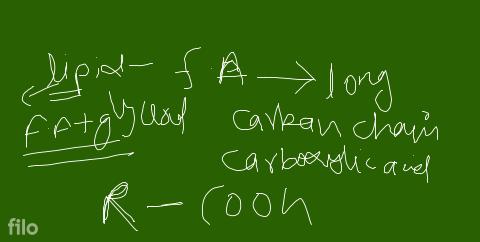 lipid - f.A → long
F.A + glycerol carbon chain
carboxylic acid
R - COOH
filo